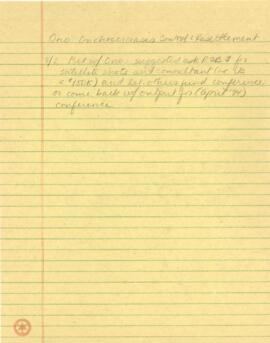 Ono: Onchocerciasis Control & Resettlement
Met w/ Ono: suggested ask for
satellite shots and consultant
< $150K) and let others fund conference
or come back w/ output for (April '94)
conference